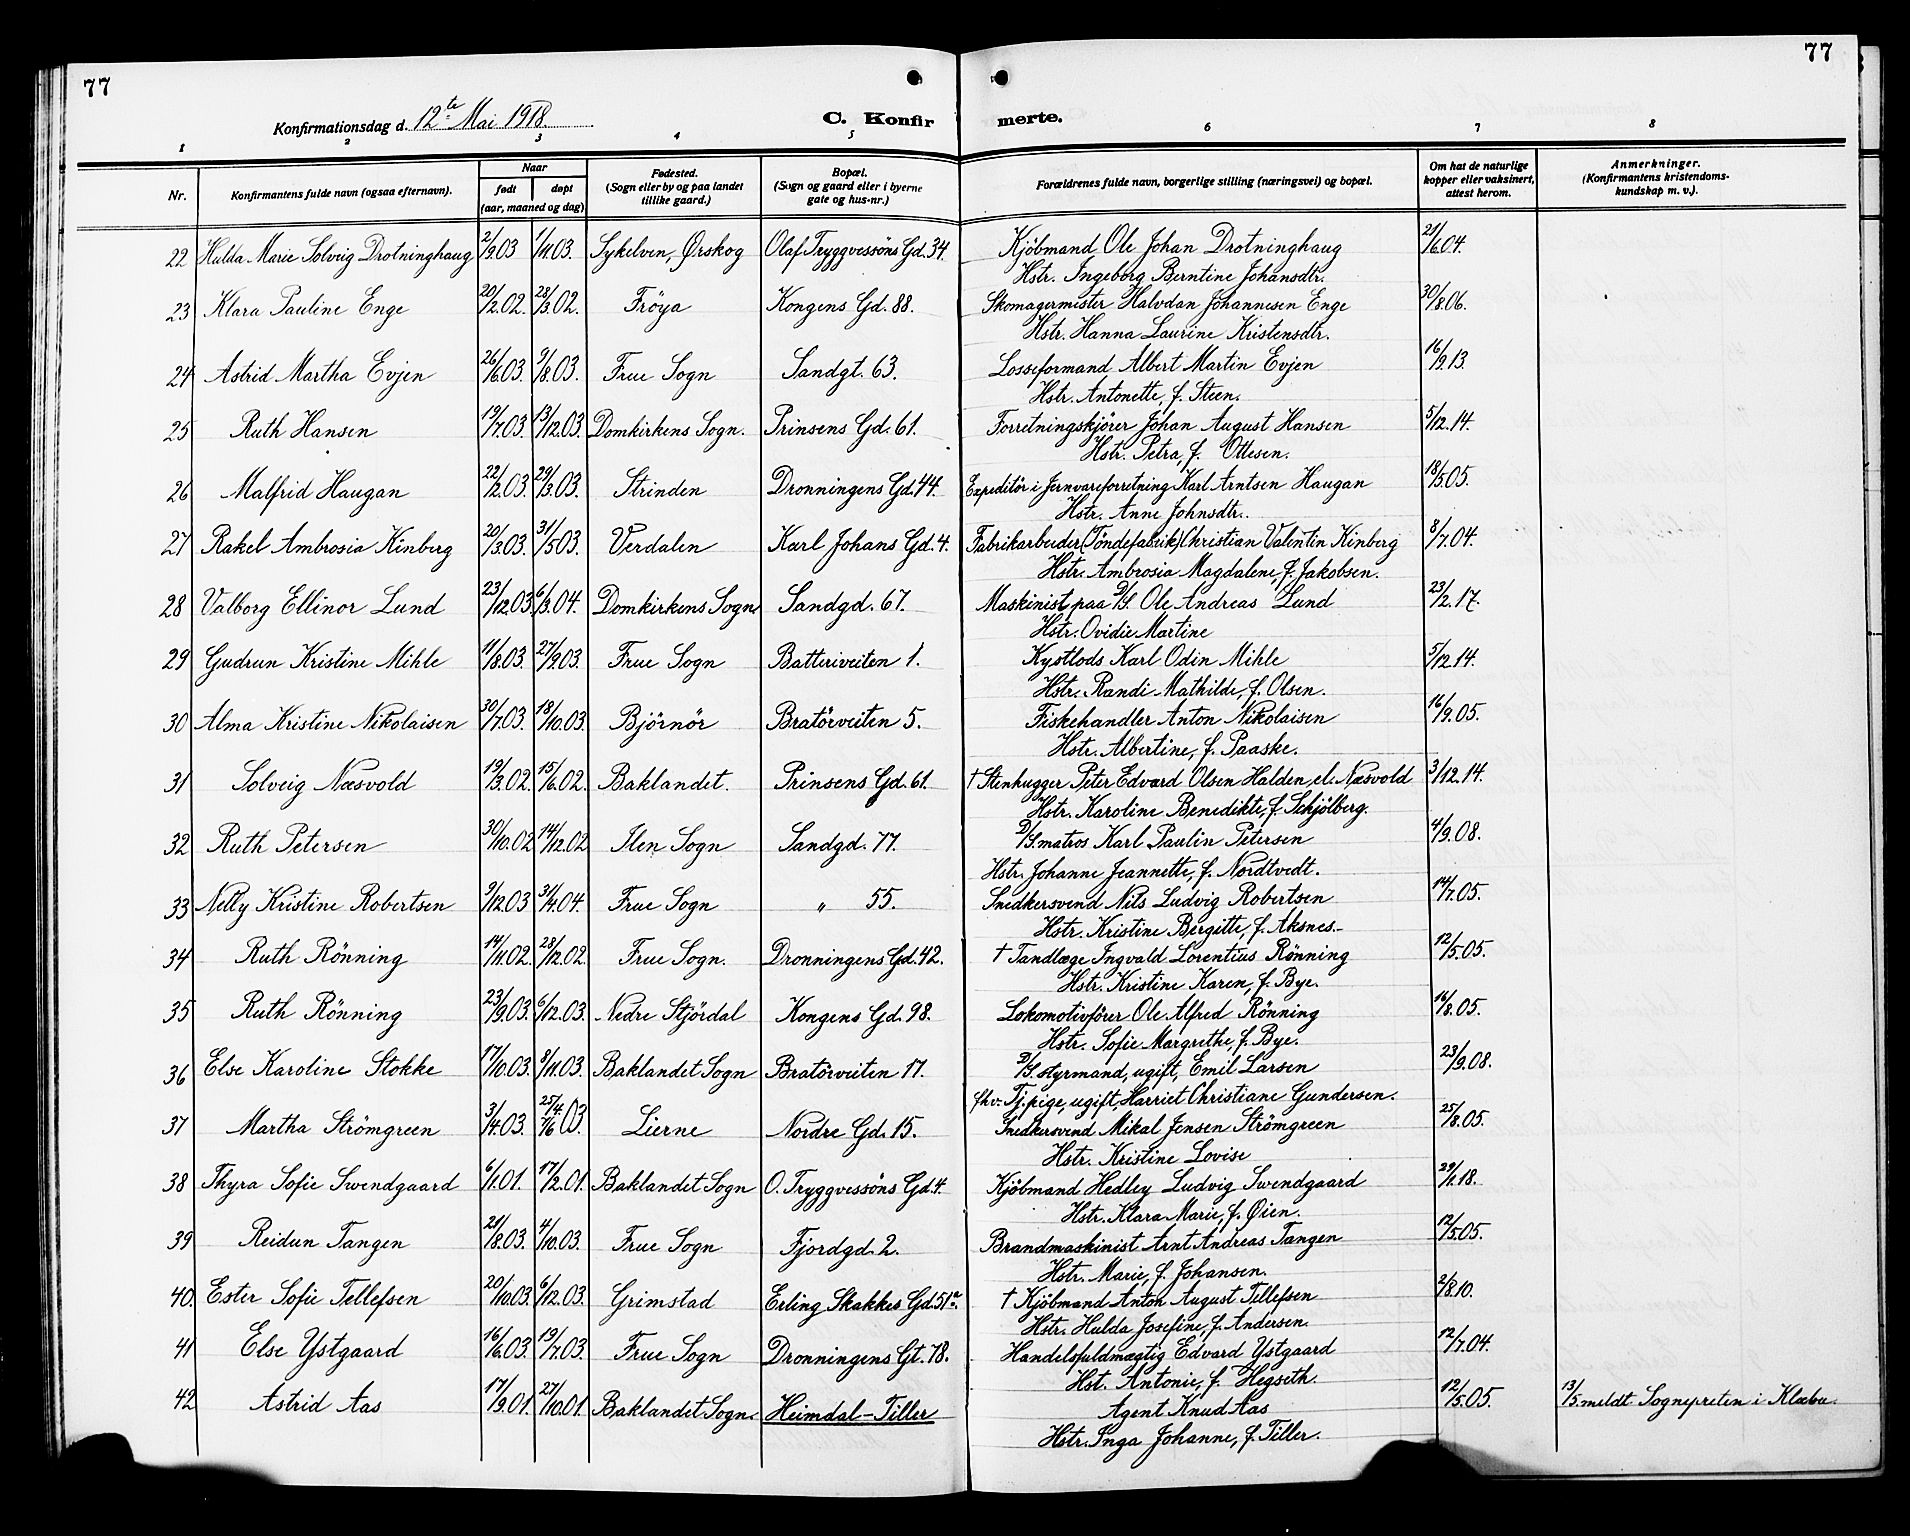 77
77
Konfirmationsdag d. 12te Mai 1918.
C. Konfirmerte.
1 2 3 4 5 6 7 8
Nr.
Konfirmantens fulde navn (ogsaa efternavn).
Naar
født
døpt
(aar, maaned og dag)
Fødested.
(Sogn eller by og paa landet
tillike gaard.)
Bopæl.
(Sogn og gaard eller i byerne
gate og hus-nr.)
Forældrenes fulde navn, borgerlige stilling (næringsvei) og bopæl.
Om hat de naturlige
kopper eller vaksinert,
attest herom.
Anmerkninger.
(Konfirmantens kristendoms-
kundskap m. v.).
22 Hulda Marie Solveig Drotninghaug 2/9.03 1/11.03. Sykelven, Ørskog Olaf Tryggvessöns Gd. 34. Kjöbmand Ole Johan Drotninghaug 21/6.04.
Hstr. Ingeborg Berntine Johansdtr.
23 Klara Pauline Enge 20/2.02. 28/3.02. Fröya Kongens Gd. 88. Skomagermester Halvdan Johannesen Enge 30/8.06.
Hstr. Hanna Laurine Kristensdtr.
24 Astrid Martha Evjen 26/6.03. 9/8.03. Frue Sogn Sandgt. 63. Losseformand Albert Martin Evjen 16/9.13.
Hstr. Antonette, f. Steen.
25 Ruth Hansen 19/7.03. 13/12.03. Domkirkens Sogn. Prinsens Gd. 61. Forretningskjörer Johan August Hansen 5/12.14.
Hstr. Petra, f. Ottesen.
26 Malfrid Haugan 22/2.03. 29/3.03. Strinden Dronningens Gd. 44. Expeditör i Jernvareforretning Karl Arntsen Haugan 18/5.05.
Hstr. Anne Johnsdtr.
27 Rakel Ambrosia Kinberg 20/3.03. 31/5.03. Verdalen Karl Johans Gd. 4. Fabrikarbeider (Töndefabrik) Christian Valentin Kinberg 8/7.04.
Hstr. Ambrosia Magdalene, f. Jakobsen.
28 Valborg Ellinor Lund 23/12.03. 6/3.04. Domkirkens Sogn Sandgd. 67. Maskinist paa D/S. Ole Andreas Lund 23/2.17.
Hstr. Ovidie Martine
29 Gudrun Kristine Mihle 11/8.03. 27/9.03. Frue Sogn Batteriveiten 1. Kystlods Karl Odin Mihle 5/12.14.
Hstr. Randi Mathilde, f. Olsen.
30 Alma Kristine Nikolaisen 30/7.03. 18/10.03. Björnör Bratörveiten 5. Fiskehandler Anton Nikolaisen 16/9.05.
Hstr. Albertine, f. Paaske.
31 Solveig Næsvold 19/3.02. 15/6.02. Baklandet. Prinsens Gd. 61. † Stenhugger Peter Edvard Olsen Halden, el. Næsvold 3/12.14.
Hstr. Karoline Benedikte, f. Schjölberg.
32 Ruth Petersen 30/10.02 14/12.02 Ilen Sogn Sandgd. 77. D/S. matros Karl Paulin Petersen 4/9.08.
Hstr. Johanne Jeannette, f. Nordtvedt.
33 Nelly Kristine Robertsen 9/12.03 3/4.04. Frue Sogn " 55. Snedkersvend Nils Ludvig Robertsen 14/7.05.
Hstr. Kristine Bergitte, f. Aksnes.
34 Ruth Rönning 14/11.02. 28/12.02. Frue Sogn. Dronningens Gd. 42. † Tandlæge Ingvald Lorentius Rönning 12/5.05.
Hstr. Kristine Karen, f. Bye.
35 Ruth Rönning 23/9.03. 6/12.03. Nedre Stjördal Kongens Gd. 98. Lokomotivförer Ole Alfred Rönning 16/8.05.
Hstr. Sofie Margrethe, f. Bye.
36 Else Karoline Stokke 17/10.03. 8/11.03. Baklandet Sogn Bratörveiten 17. D/S. styrmand, ugift, Emil Larsen 23/9.08.
fhv. Tj. pige, ugift, Harriet Christiane Gundersen.
37 Martha Strömgreen 3/4.03. 25/4 7/6 03. Lierne Nordre Gd. 15. Snedkersvend Mikal Jensen Strömgreen 25/8.05.
Hstr. Kristine Lovise
38 Thyra Sofie Swendgaard 6/1.01. 17/2.01. Baklandet Sogn O. Tryggvessöns Gd. 4. Kjöbmand Hedley Ludvig Swendgaard 29/1.18.
Hstr. Klara Marie, f. Øien.
39 Reidun Tangen 21/8.03. 4/10.03. Frue Sogn Fjordgd. 2. Brandmaskinist Arnt Andreas Tangen 12/5.05.
Hstr. Marie, f. Johansen.
40. Ester Sofie Tellefsen 20/10.03. 6/12.03. Grimstad Erling Skakkes Gd. 51a. † Kjöbmand Anton August Tellefsen 2/8.10.
Hstr. Hulda Josefine, f. Andersen.
41 Else Ystgaard 16/6.03. 19/7.03. Frue Sogn Dronningens Gt. 78. Handelsfuldmægtig Edvard Ystgaard 12/7.04.
Hst. Antonie, f. Hegseth.
42 Astrid Aas 17/9.01. 27/10.01. Baklandet Sogn. Heimdal-Tiller Agent Knud Aas 12/5.05. 13/5. meldt Sognepresten i Klæbu.
Hstr. Inga Johanne, f. Tiller.